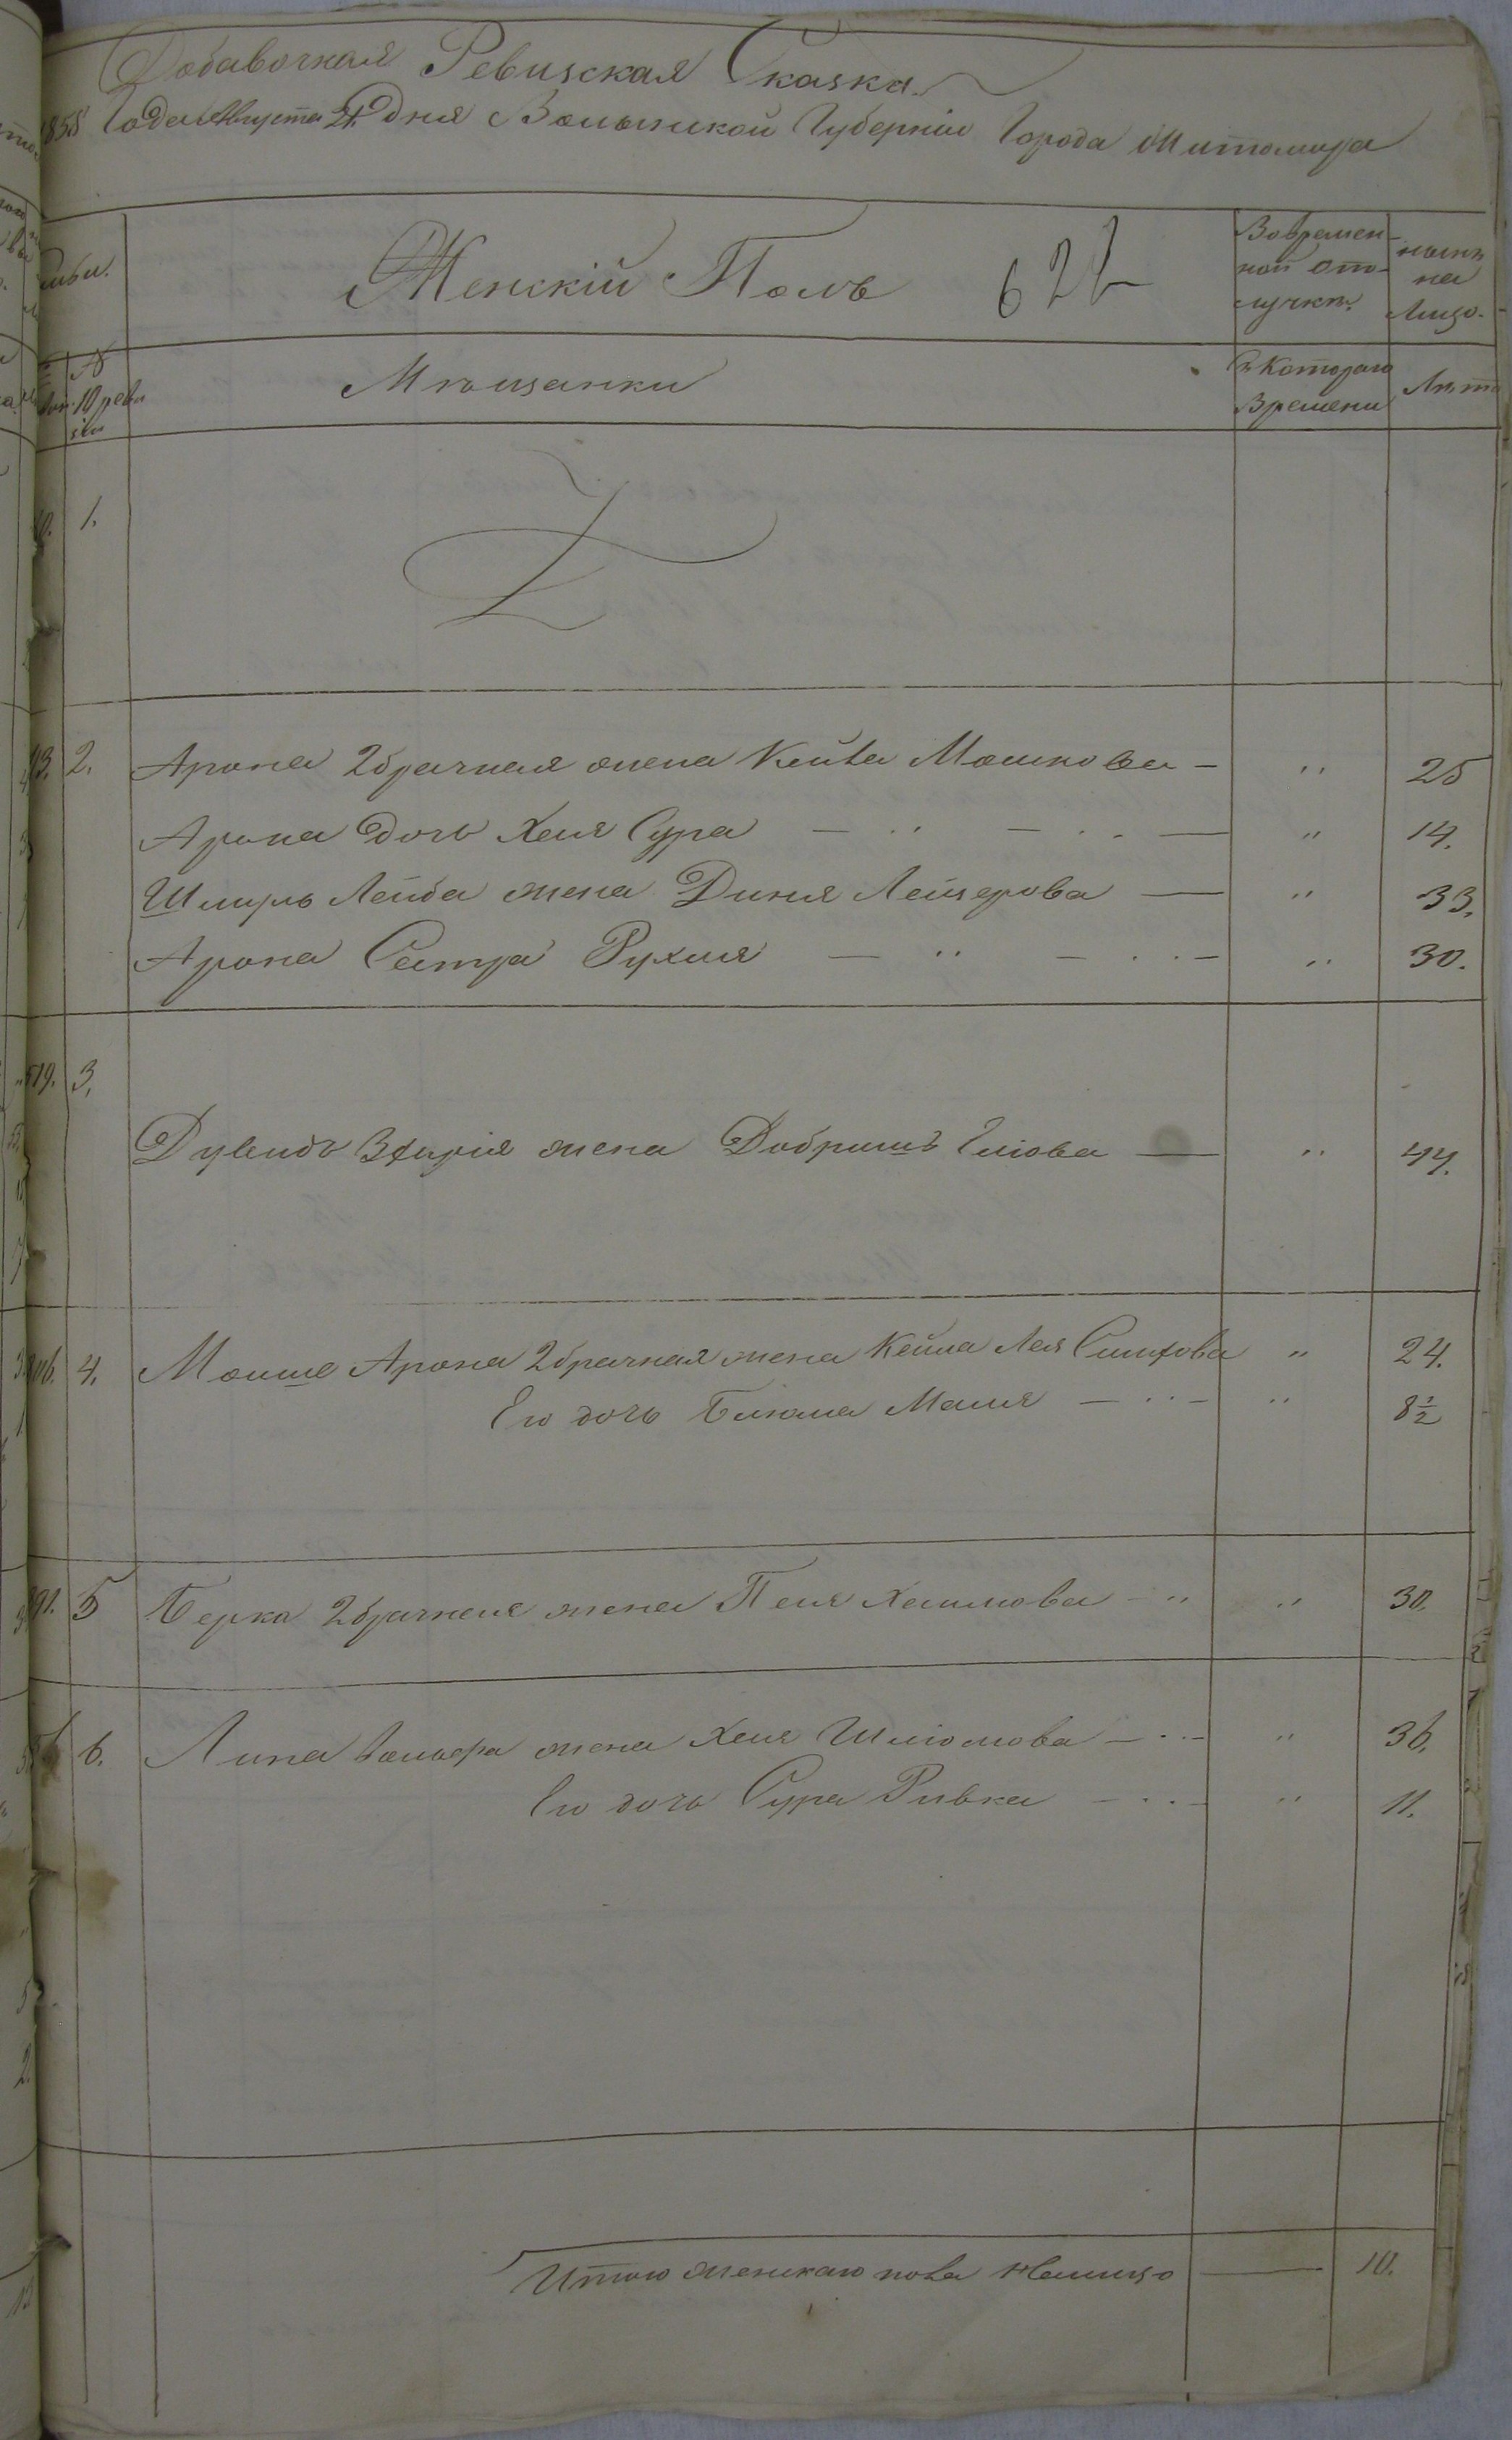 Добавочная Ревизская Сказка
1858 Года Августа 21 Дня Волынской Губерніи Города Житомира
Женскій Полъ 622
Во времен-
ной от-
лучкѣ.
нынѣ
на
Лицо.
№
10 реви
зіи
Мѣщанки
Съ Котораго
Времени
Лѣта
1.
2. Арона 2 брачная жена Кейла Мошкова — " 25
Арона Дочь Хая Сура — " — " — " 14.
Шмуль Лейба жена Диня Лейзерова — " 33.
Арона Сестра Рухля — " — " — " 30.
3.
жена Добришъ — " 44.
4. Мошие Арона 2 брачная жена Кейла Лея " 24.
Его дочь Малия — " — " 8½
5 Берка 2 брачная жена Пеля Хаимова — " " 30.
6. жена Хая Шліомова — " — " 36.
Его дочь Сура Ривка — " — " 11.
Итого женскаго пола налицо — 10.